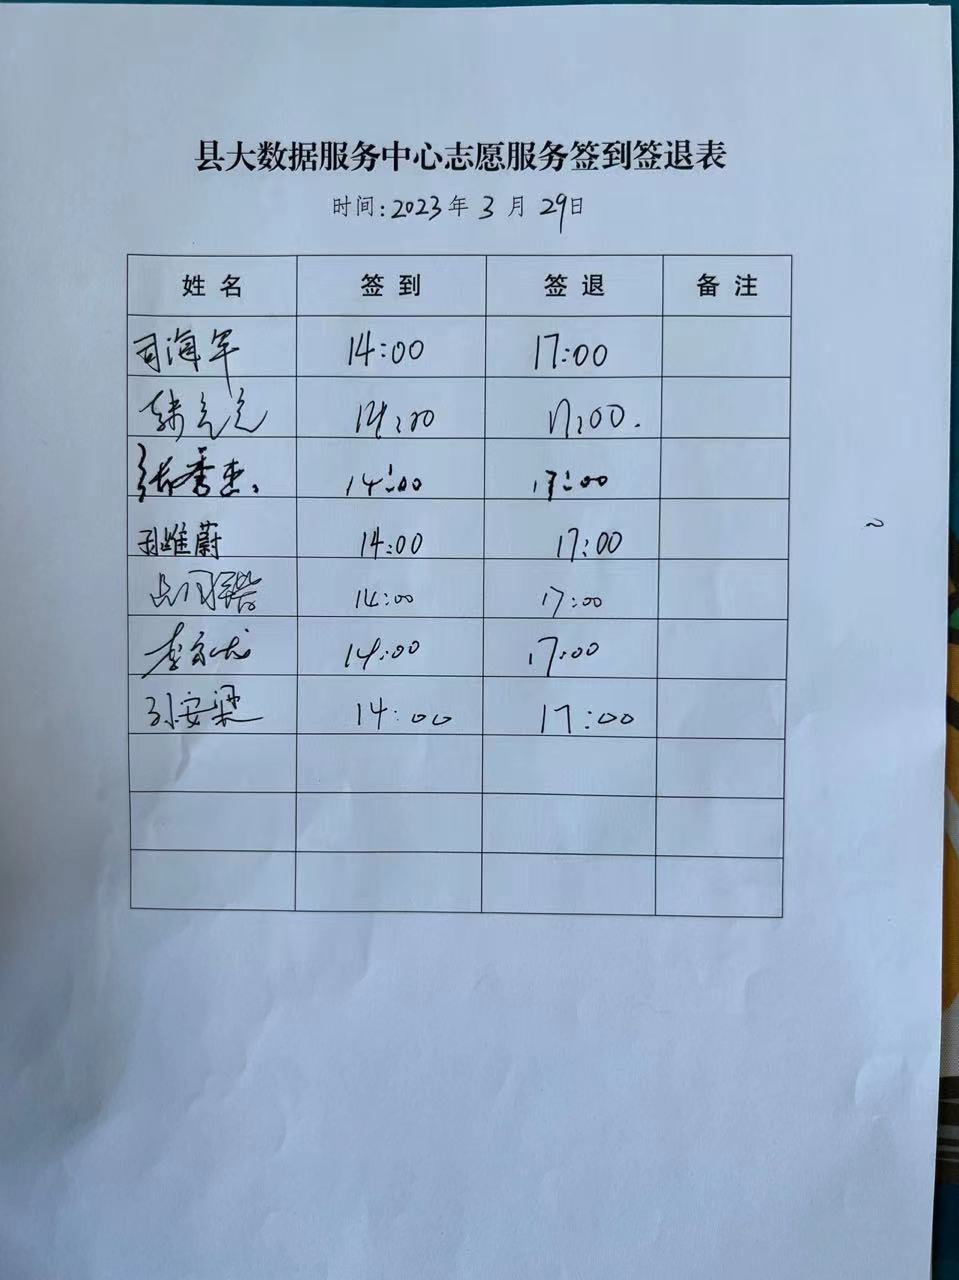 县大数据服务中心志愿服务签到签退表
时间:2023年3月29日
姓名 签到 签退 备注
司海军 14:00 17:00
14:00 17:00.
张秀杰 14:00 17:00
孙雌蔚 14:00 17:00
14:00 17:00
李 14:00 17:00
孙安梁 14:00 17:00